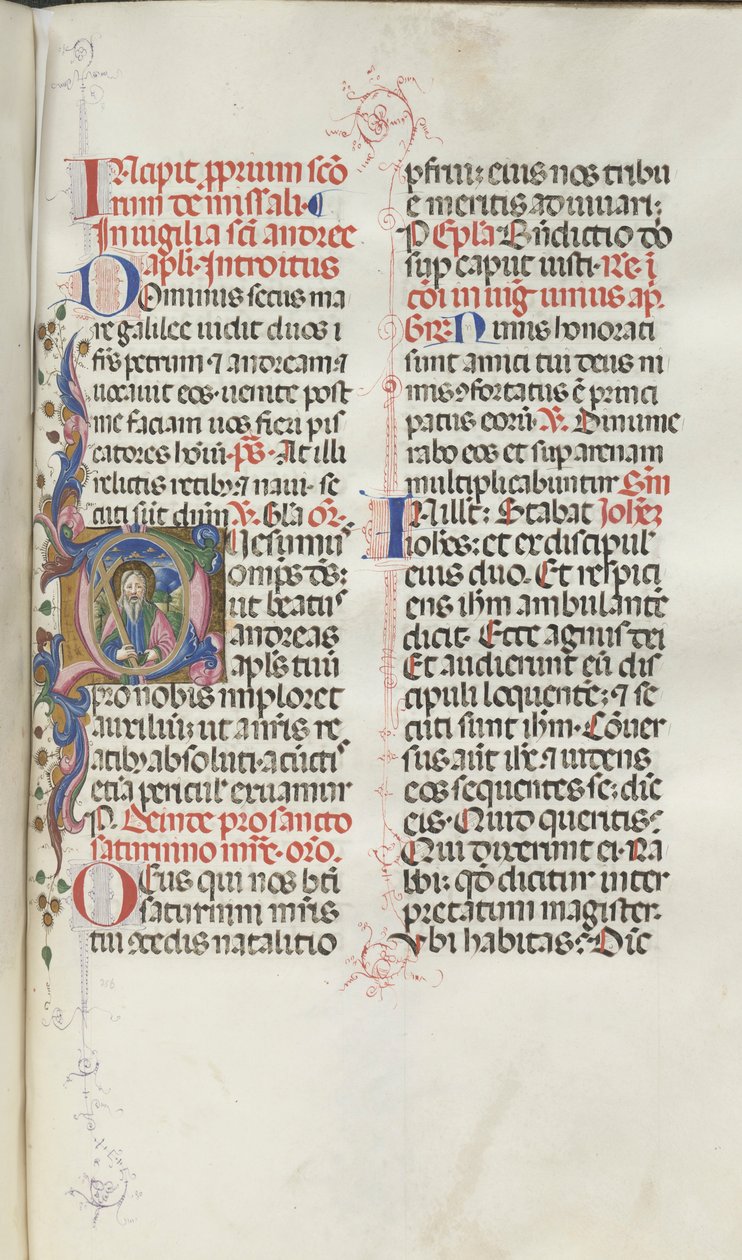 INcipit ꝓprium scō
rum de missali.
In uigilia sc̄i andree
apl̄i. Introitus
DOminus secus ma
re galilee uidit duos f
rēs petrum ⁊ andream ⁊
uocauit eos. uenite post
me faciam uos fieri pis
catores hoīū. p̄s. At illi
relictis retibꝫ ⁊ naui. se
cuti sūt dn̄m. V̄. Gl̄a or̄.
Quesumus
omp̄s d̄s:
ut beatus
andreas
apl̄s tuus
pro nobis imploret
auxiliū: ut a nr̄is re
atibꝫ absoluti. a cūctis
etiā pericul̓ eruamur
P. Deinde pro sancto
saturnino mr̄e. or̄o.
DEus qui nos bt̄i
saturnini mr̄is
tui ꝯcedis natalitio
ꝑfrui: eius nos tribu
e meritis adiuuari:
P. Epl̄a Bn̄dictio dō
sup̄ caput iusti. Re. ī
cōi in uig̓ unius ap̄.
Gr̄. Nimis honorati
sunt amici tui deus ni
mis ꝯfortatus ē princi
patus eorū. V̄. Dinume
rabo eos et sup̄ arenam
multiplicabuntur Sm̄
IN ill̄ t̄: Stabat Joh̄ez
ioh̄es: et ex discipul̓
eius duo. Et respici
ens ih̄m ambulantē
dicit. Ecce agnus dei
Et audierunt eū dis
cipuli loquentē: ⁊ se
cuti sunt ih̄m. Cōuer
sus aūt ih̄s ⁊ uidens
eos sequentes se: dīc
eis. Quid queritis?
Qui dixerunt ei. Ra
bbi: qd̄ dicitur inter
pretatum magister.
Vbi habitas? Dīc
256